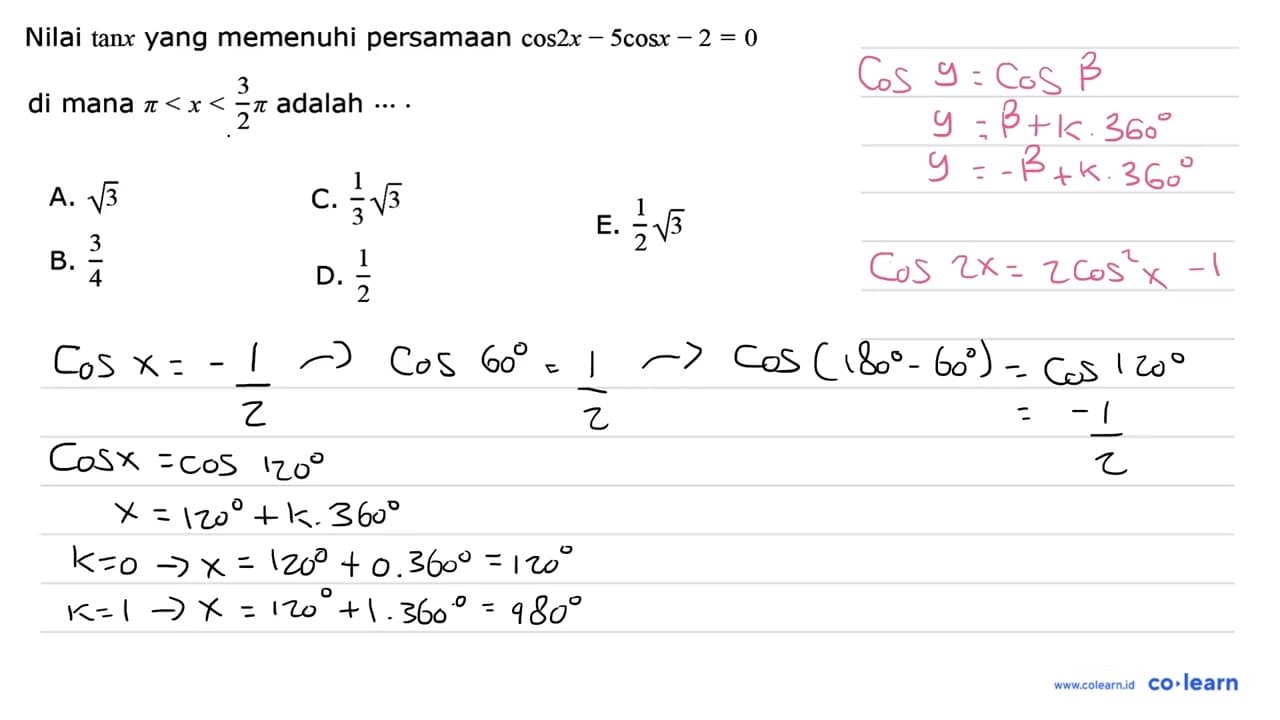 Nilai tanx yang memenuhi persamaan cos2x − 5cosx − 2 = 0
di mana π < x < 3/2 π adalah ... .
A. √3
B. 3/4
C. 1/3 √3
D. 1/2
E. 1/2 √3
Cos y = Cos β
y = β + k . 360°
y = -β + k . 360°
Cos 2x = 2 Cos² x - 1
Cos x = - 1/2 → Cos 60° = 1/2 → Cos (180° - 60°) = Cos 120°
= -1/2
Cosx = cos 120°
x = 120° + k . 360°
k=0 → x = 120° + 0 . 360° = 120°
k=1 → x = 120° + 1 . 360° = 980°
www.colearn.id co·learn